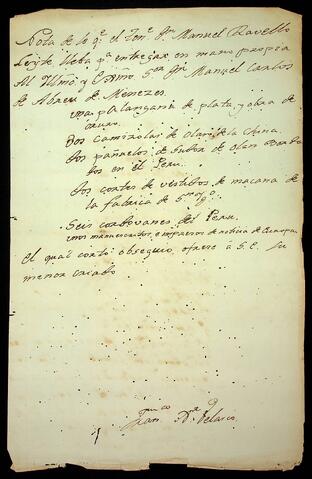 Nota de lo q.e el Ten.e Dn Manuel Ravello
lleba p.a entregar en mano propia
Al Illmo y Exmo S.or Dn Manuel Carlos
de Abreu de Menezes.
una palangana de plata, y obra de
Dos camisolas de olan de la China.
dos pañuelos de olan borda
dos en el Peru.
dos cortes de vestidos de macana de
la fabrica de
Seis cordovanes del Peru.
unos manuscritos, e impresos de noticia de Europa.
El qual corto obsequio, ofrece á S.E. su
menor criado
Fran.co Velasco